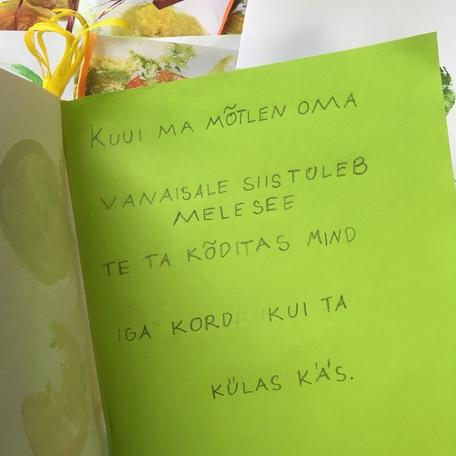 KUUI MA MÕTLEN OMA
VANAISALE SIIS TULEB
MELESEE
TE TA KÕDITAS MIND
IGA KORD KUI TA
KÜLAS KÄS.